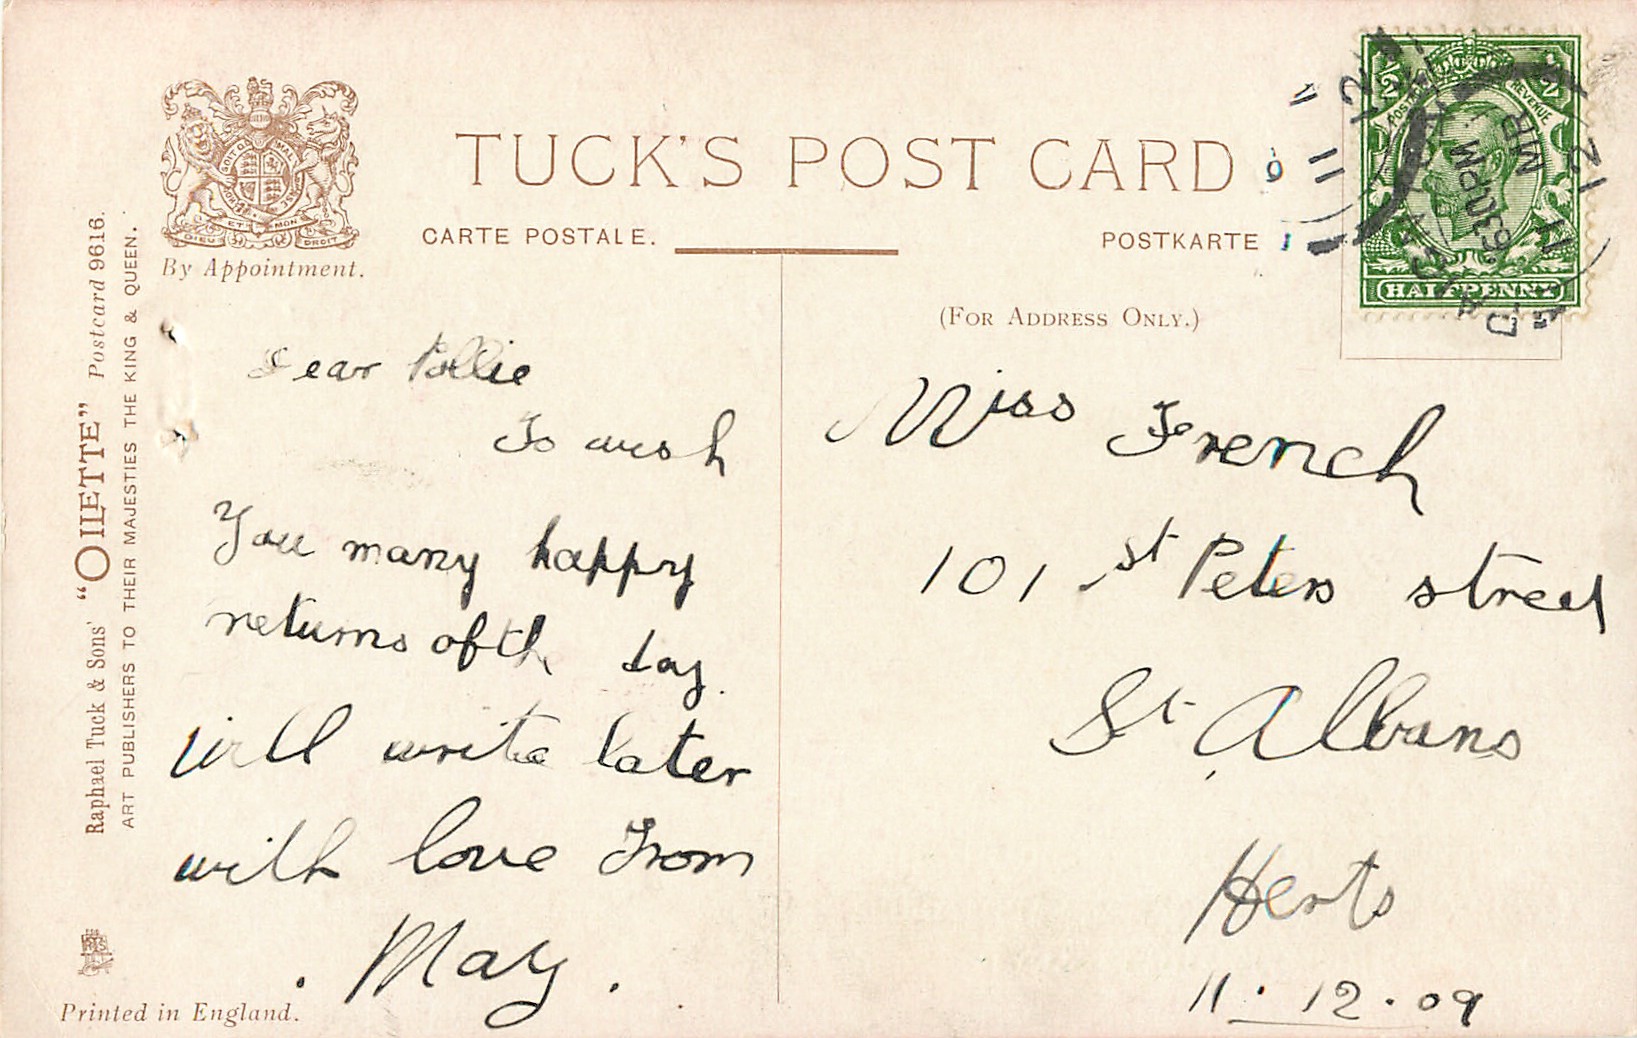 TUCK'S POST CARD
CARTE POSTALE.
POSTKARTE
(FOR ADDRESS ONLY.)
DIEU ET MON DROIT
By Appointment.
Raphael Tuck & Sons' "OILETTE" Postcard 9616.
ART PUBLISHERS TO THEIR MAJESTIES THE KING & QUEEN.
Printed in England.
Dear Pollie
To wish
You many happy
returns of th day.
will write later
with love From
May.
Miss French
101 St Peters street
St Albans
Herts
11.12.09
POSTAGE REVENUE
HALFPENNY
6 30 PM
MR